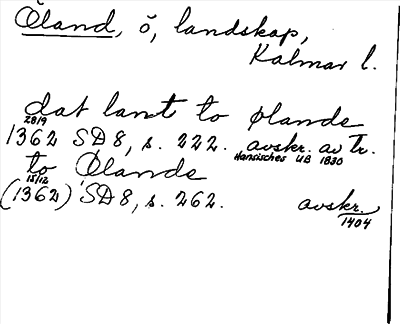 Öland, ö, landskap,
Kalmar l.
dat lant to ølande
28/9
1362 SD 8, s. 222. avskr. av Tr.
Hansisches UB 1830
to Ølande
15/12
(1362) SD 8, s. 262. avskr.
1404